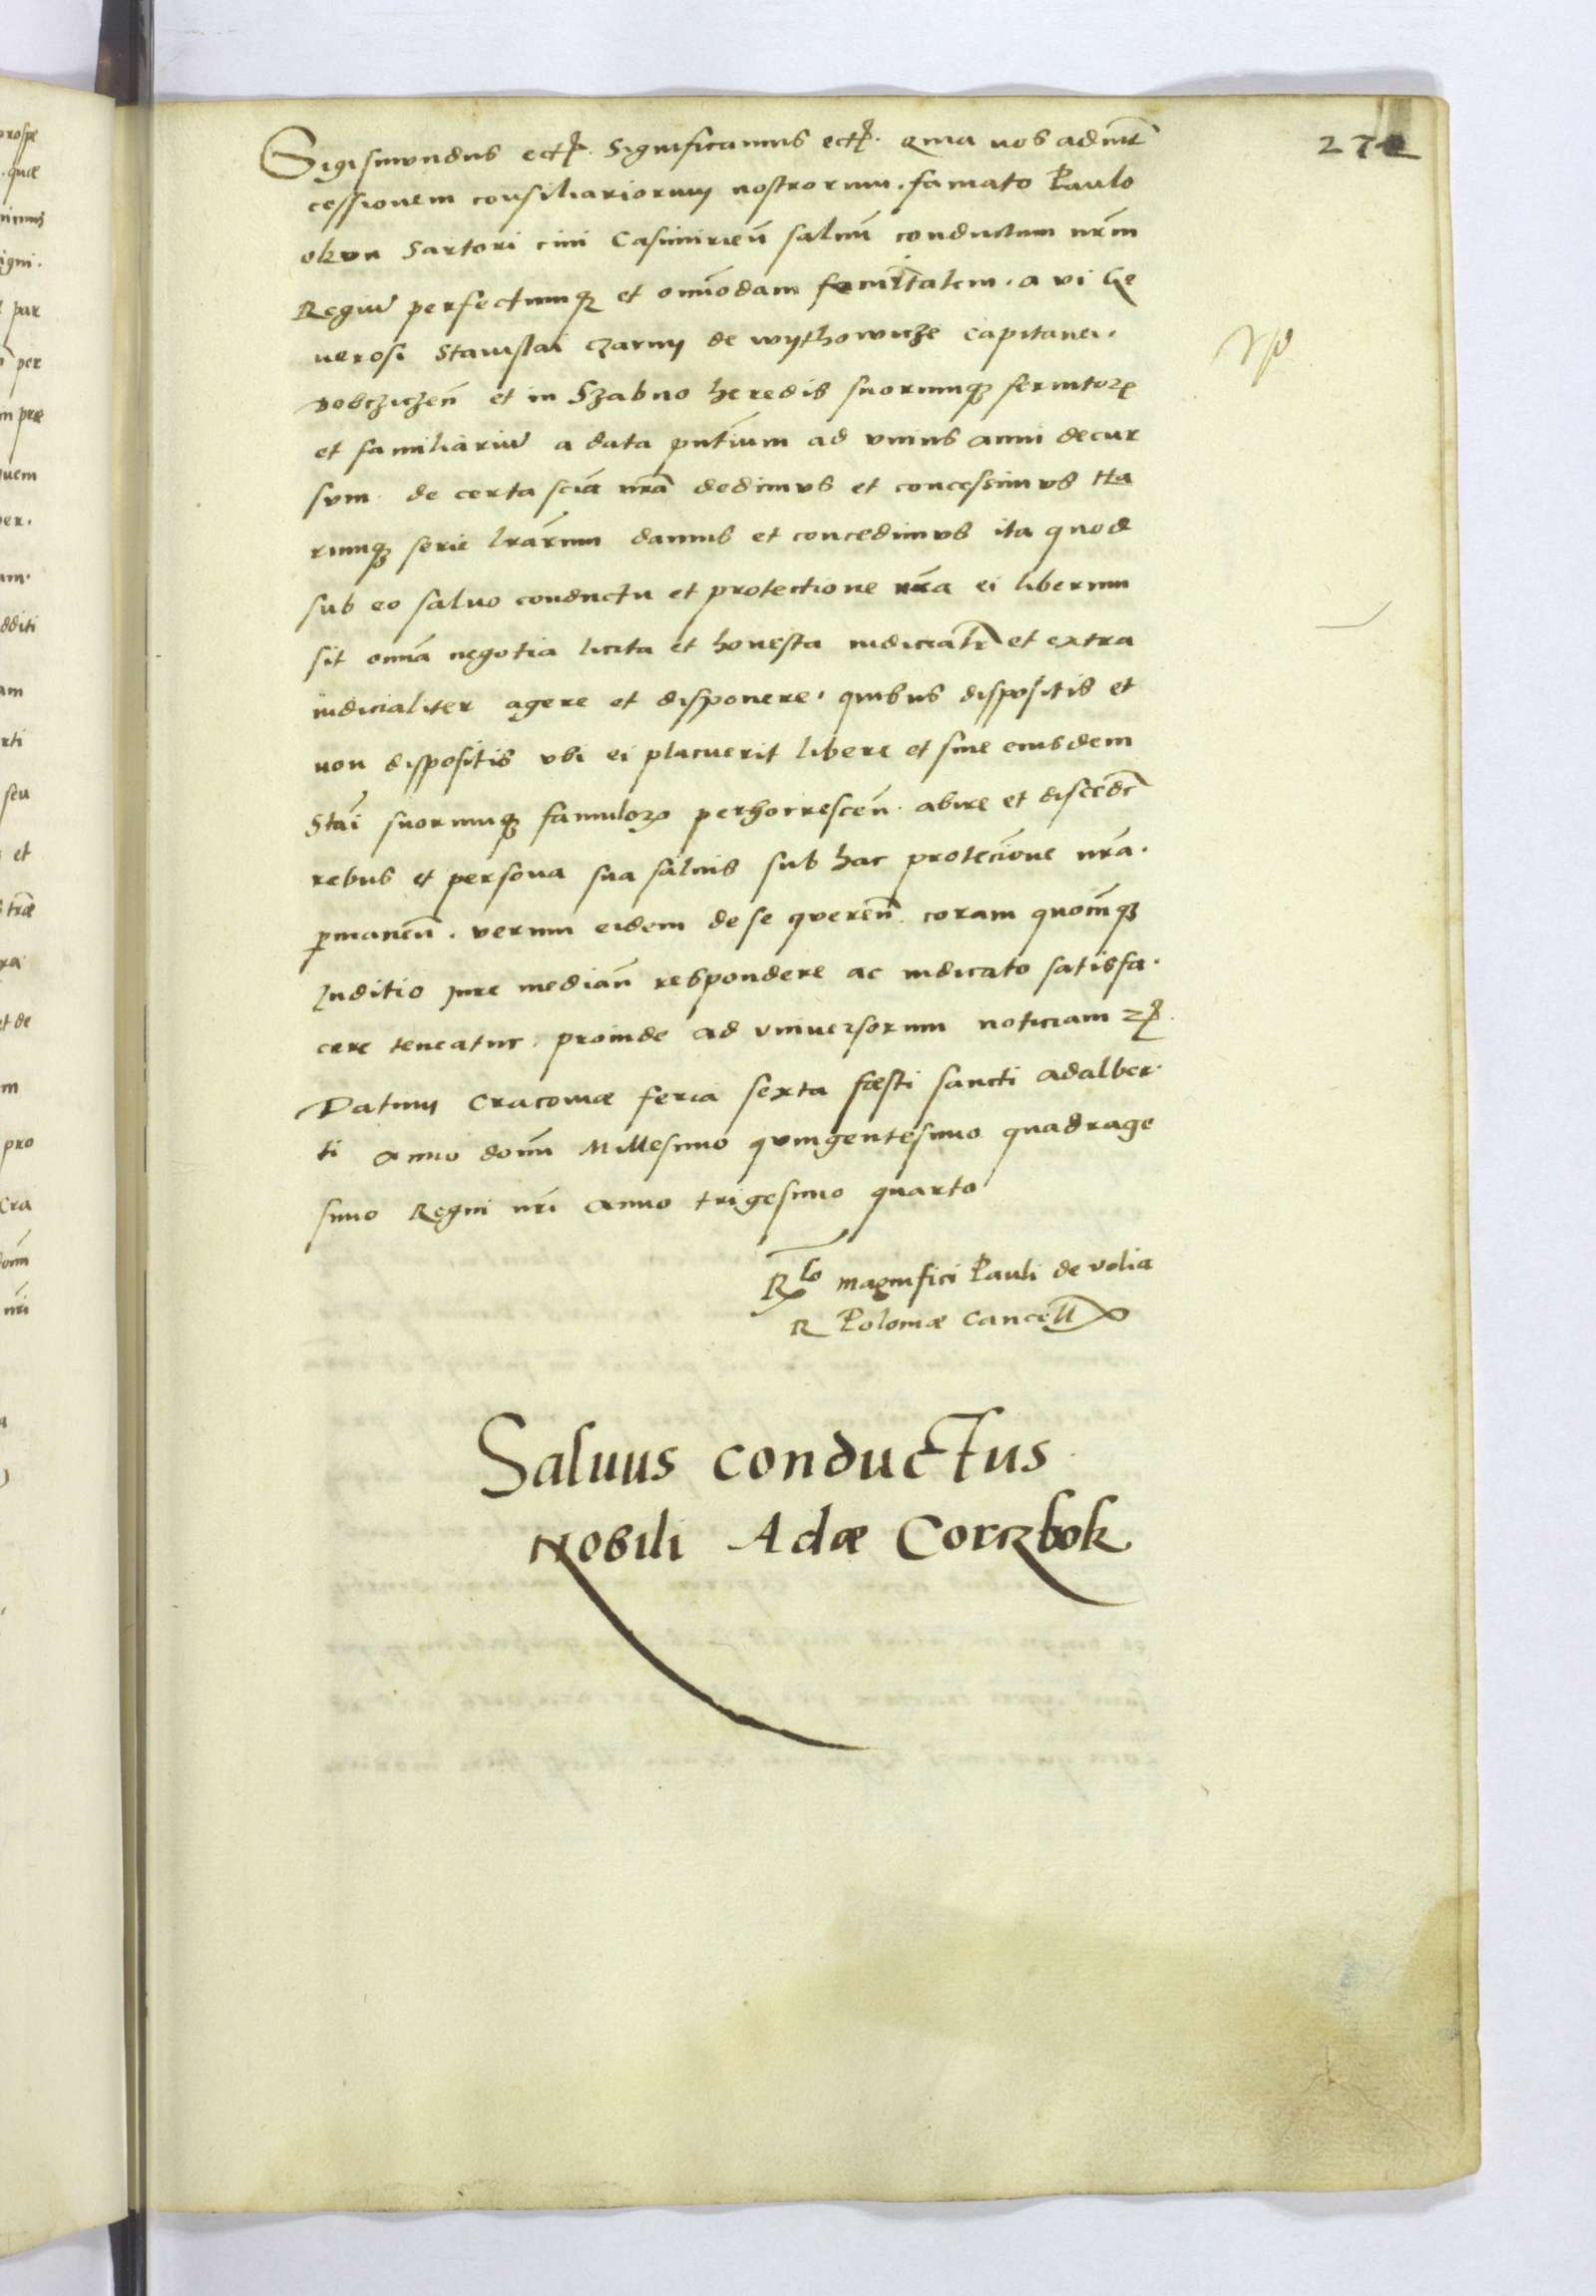 272
Sigismundus ect. Significamus ect. Quia nos ad int̃
cessionem consiliariorum nostrorum. famato Paulo
okun Sartori ciui Casimirien̄ saluū conductum nr̄m
Regiū perfectumq3 et om̄odam securitatem. a vi Ge
nerosi Stanislai Czarny de wythowicze Capitanei.
Dobczicen̄ et in Szabno heredis suorumq3 seruitor
et familiariū a data pn̄tium ad vnius anni decur
sum de certa scia nr̄a dedimus et concessimus Ha
rumq3 serie lr̄arum damus et concedimus ita quod
sub eo saluo conductu et protectione nr̄a ei liberum
sit om̄ia negotia licita et honesta iudicialr̄ et extra
iudicialiter agere et disponere. quibus dispositis et
non dispositis vbi ei placuerit libere et sine eiusdem
Stai suorumq3 famulor perhorrescen̄. abire et discedẽ
rebus et persona sua saluis sub hac protectione nr̄a.
permanen̄. verum eidem de se queren̄. coram quocūq3
Juditio jure median̄ respondere ac iudicato satisfa.
cere teneatur. proinde ad vniuersorum noticiam
Datum Cracouiæ feria sexta fæsti sancti adalber.
ti anno domī Millesimo quingentesimo quadrage
simo Regni nr̄i anno trigesimo quarto
Rlo magnifici Pauli de volia
R Poloniæ Cancell
Saluus conductus
Nobili Adæ Corczbok